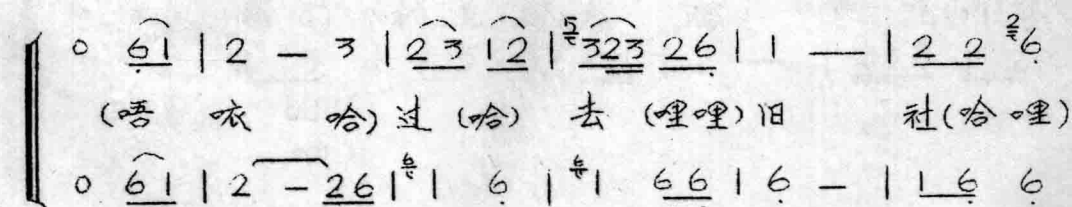 0 6̣1 | 2 — 3 | 23 12 | ⁵323 26̣ | 1 — | 2 2 ²6̣
(唔 咴 哈) 过 (哈) 去 (哩哩) 旧 社 (哈 哩)
0 6̣1 | 2 — 26 | ⁶1 6̣ | ⁶1 6̣6̣ | 6̣ — | 1 6̣ 6̣